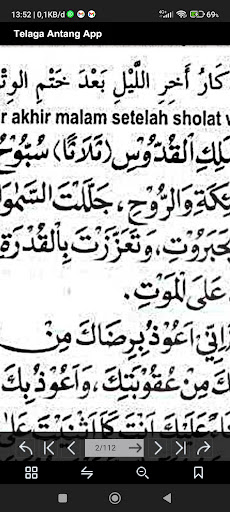 13:52 | 0,1KB/d
69%
Telaga Antang App
كَارُ أَخِرِ اللَّيْلِ بَعْدَ خَتْمِ الْوِتْ
r akhir malam setelah sholat w
مَلِكِ الْقُدُّوْسِ (ثَلَاثًا) سُبُّوْحٌ
ئِكَةِ وَالرُّوْحِ، جَلَّلْتَ السَّمٰوَا
لْجَبَرُوْتِ، وَتَعَزَّزْتَ بِالْقُدْرَةِ
عَلَى الْمَوْتِ.
اِنِّيْ اَعُوْذُ بِرِضَاكَ مِنْ
كَ مِنْ عُقُوْبَتِكَ، وَاَعُوْذُ بِكَ
عَلَيْكَ اَنْتَ كَمَا اَثْنَيْتَ عَلٰى
2/112